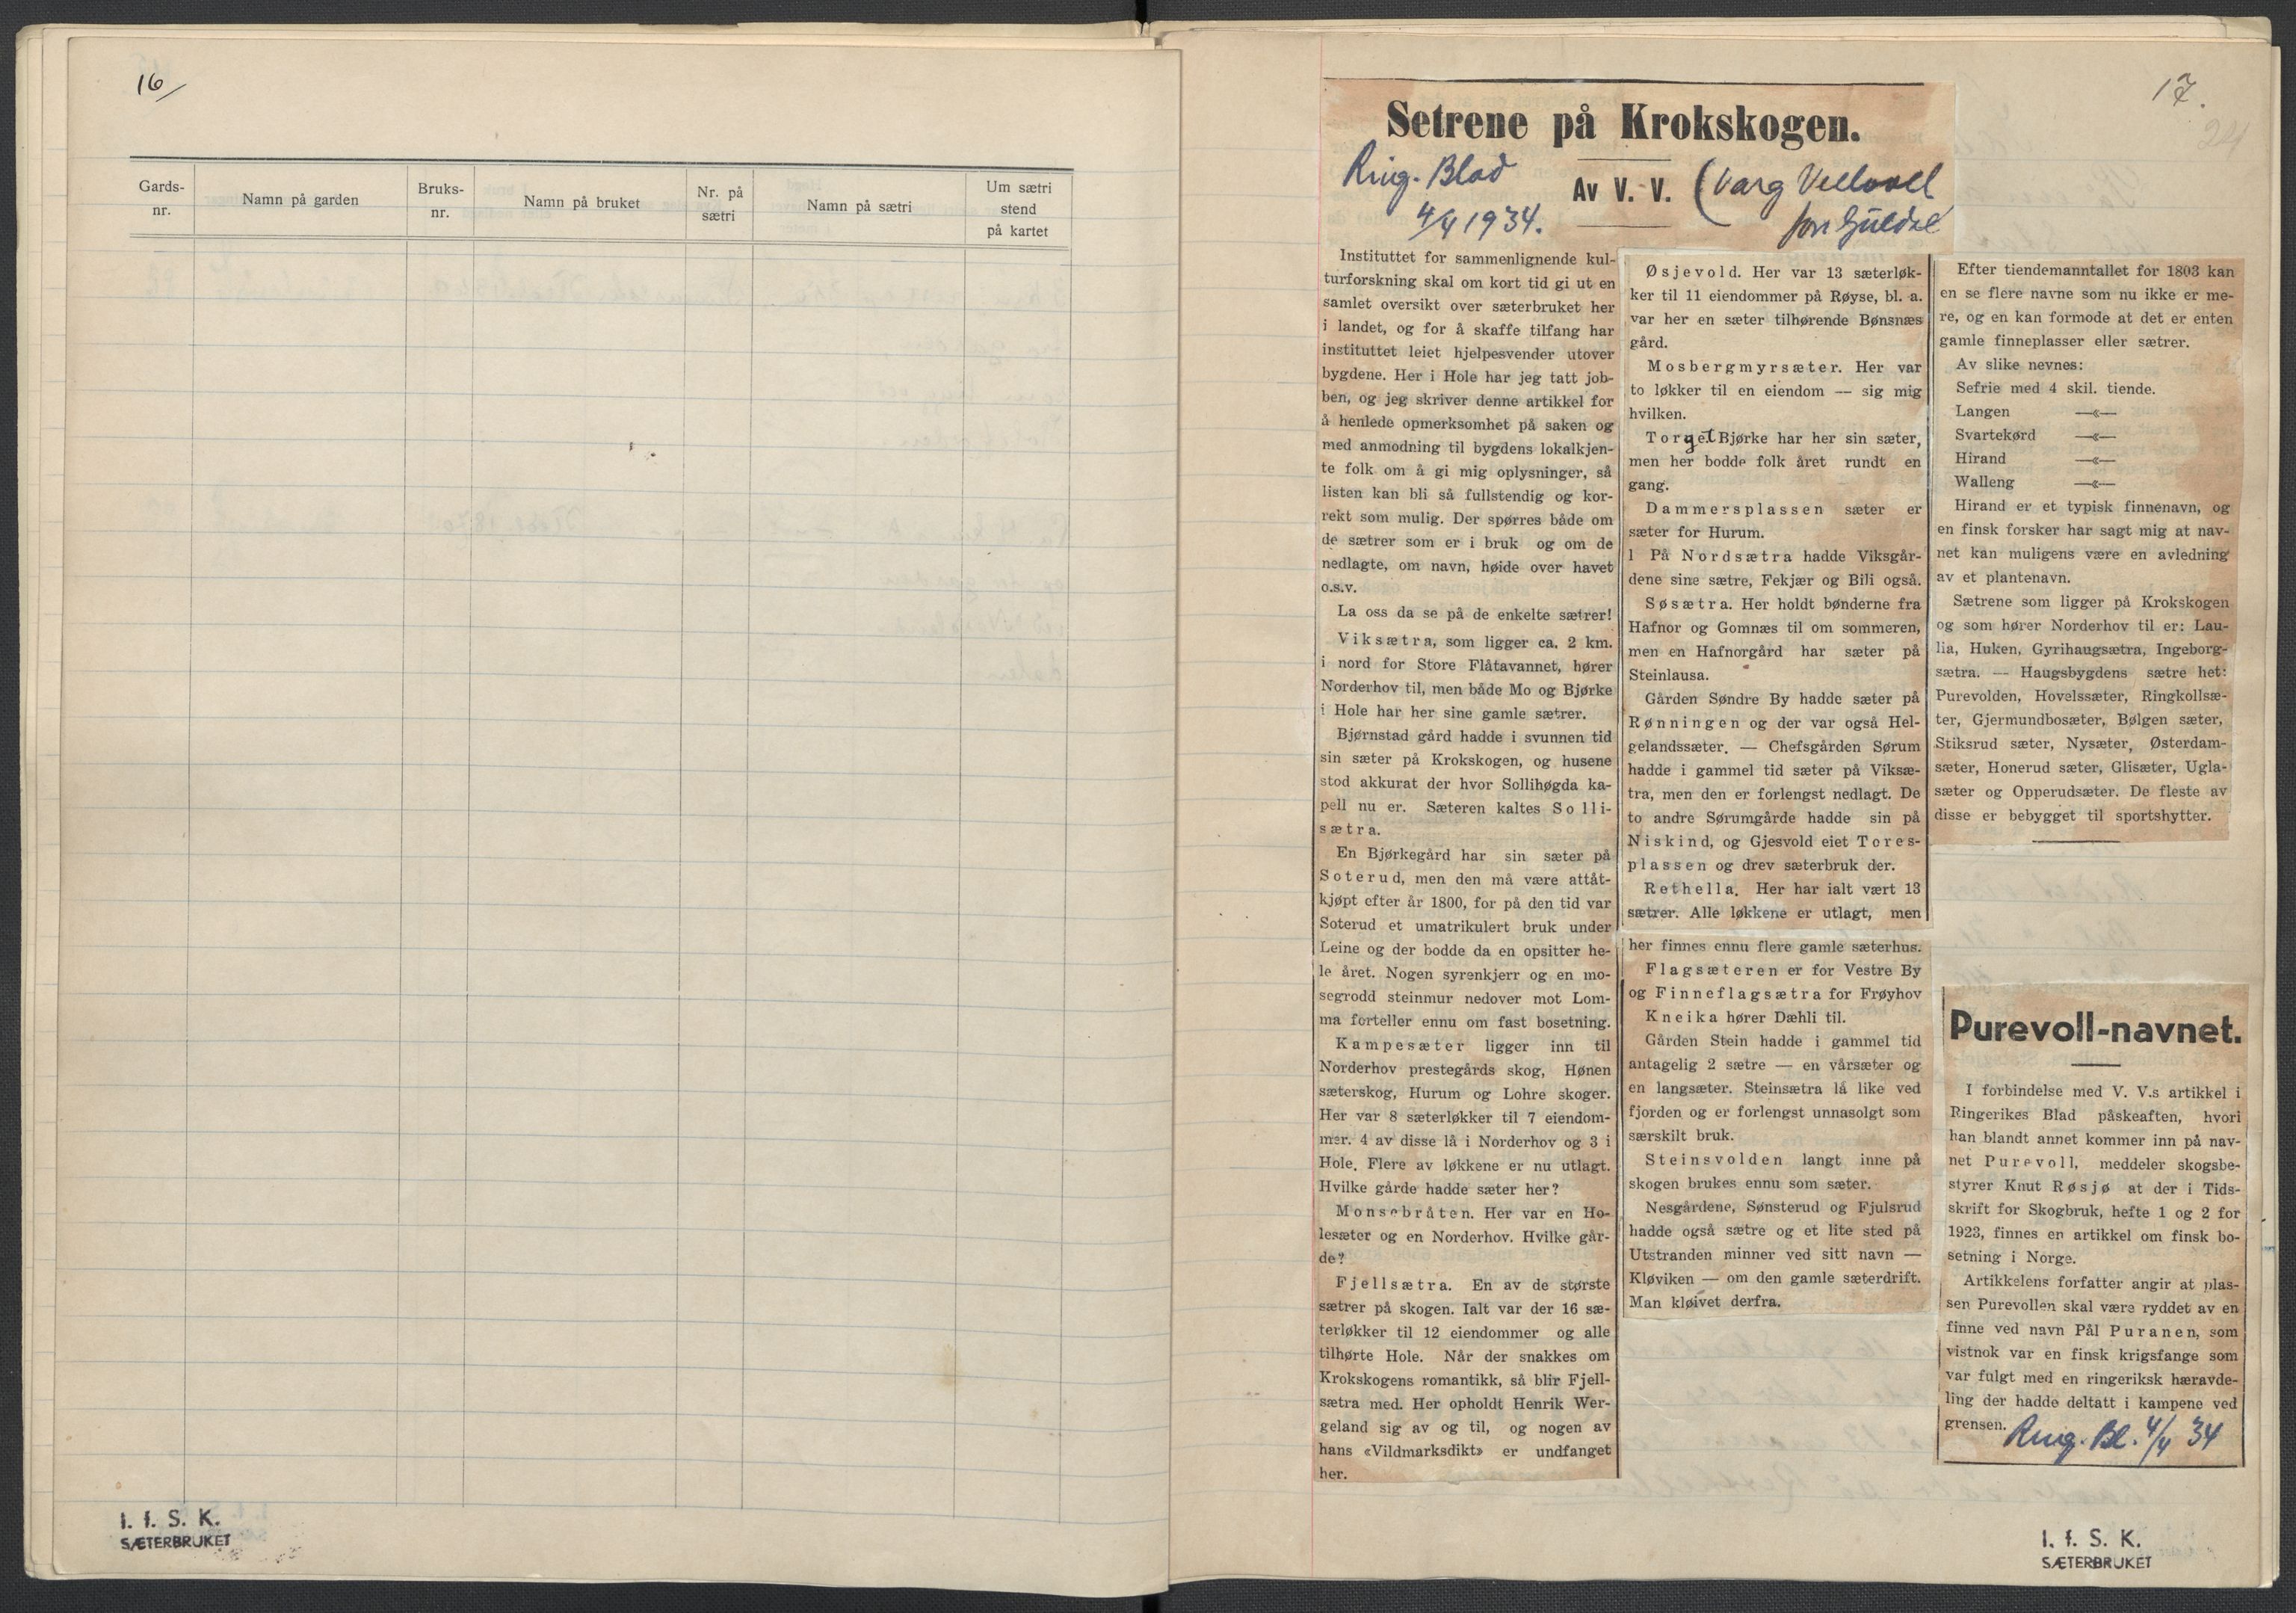 16/
Gards-
nr.
Namn på garden
Bruks-
nr.
Namn på bruket
Nr. på
sætri
Namn på sætri
Um sætri
stend
på kartet
I. f. S. K.
SÆTERBRUKET
17.
24
Setrene på Krokskogen.
Ring. Blad
4/4 1934.
Av V. V. (Varg
Instituttet for sammenlignende kul-
turforskning skal om kort tid gi ut en
samlet oversikt over sæterbruket her
i landet, og for å skaffe tilfang har
instituttet leiet hjelpesvender utover
bygdene. Her i Hole har jeg tatt job-
ben, og jeg skriver denne artikkel for
å henlede opmerksomhet på saken og
med anmodning til bygdens lokalkjen-
te folk om å gi mig oplysninger, så
listen kan bli så fullstendig og kor-
rekt som mulig. Der spørres både om
de sætrer som er i bruk og om de
nedlagte, om navn, høide over havet
o.s.v.
La oss da se på de enkelte sætrer!
Viksætra, som ligger ca. 2 km.
i nord for Store Flåtavannet, hører
Norderhov til, men både Mo og Bjørke
i Hole har her sine gamle sætrer.
Bjørnstad gård hadde i svunnen tid
sin sæter på Krokskogen, og husene
stod akkurat der hvor Sollihøgda ka-
pell nu er. Sæteren kaltes Solli-
sætra.
En Bjørkegård har sin sæter på
Soterud, men den må være attåt-
kjøpt efter år 1800, for på den tid var
Soterud et umatrikulert bruk under
Leine og der bodde da en opsitter he-
le året. Nogen syrenkjerr og en mo-
segrodd steinmur nedover mot Lom-
ma forteller ennu om fast bosetning.
Kampesæter ligger inn til
Norderhov prestegårds skog, Hønen
sæterskog, Hurum og Lohre skoger.
Her var 8 sæterløkker til 7 eiendom-
mer. 4 av disse lå i Norderhov og 3 i
Hole. Flere av løkkene er nu utlagt.
Hvilke gårde hadde sæter her?
Monsebråten. Her var en Ho-
lesæter og en Norderhov. Hvilke går-
de?
Fjellsætra. En av de største
sætrer på skogen. Ialt var der 16 sæ-
terløkker til 12 eiendommer og alle
tilhørte Hole. Når der snakkes om
Krokskogens romantikk, så blir Fjell-
sætra med. Her opholdt Henrik Wer-
geland sig av og til, og nogen av
hans «Vildmarksdikt» er undfanget
her.
Øsjevold. Her var 13 sæterløk-
ker til 11 eiendommer på Røyse, bl. a.
var her en sæter tilhørende Bønsnæs
gård.
Mosbergmyrsæter. Her var
to løkker til en eiendom — sig mig
hvilken.
Torget Bjørke har her sin sæter,
men her bodde folk året rundt en
gang.
Dammersplassen sæter er
sæter for Hurum.
l På Nordsætra hadde Viksgår-
dene sine sætre, Fekjær og Bili også.
Søsætra. Her holdt bønderne fra
Hafnor og Gomnæs til om sommeren,
men en Hafnorgård har sæter på
Steinlausa.
Gården Søndre By hadde sæter på
Rønningen og der var også Hel-
gelandssæter. — Chefsgården Sørum
hadde i gammel tid sæter på Viksæ-
tra, men den er forlengst nedlagt. De
to andre Sørumgårde hadde sin på
Niskind, og Gjesvold eiet Tores-
plassen og drev sæterbruk der.
Rethella. Her har ialt vært 13
sætrer. Alle løkkene er utlagt, men
her finnes ennu flere gamle sæterhus.
Flagsæteren er for Vestre By
og Finneflagsætra for Frøyhov
Kneika hører Dæhli til.
Gården Stein hadde i gammel tid
antagelig 2 sætre — en vårsæter og
en langsæter. Steinsætra lå like ved
fjorden og er forlengst unnasolgt som
særskilt bruk.
Steinsvolden langt inne på
skogen brukes ennu som sæter.
Nesgårdene, Sønsterud og Fjulsrud
hadde også sætre og et lite sted på
Utstranden minner ved sitt navn —
Kløviken — om den gamle sæterdrift.
Man kløivet derfra.
Efter tiendemanntallet for 1803 kan
en se flere navne som nu ikke er me-
re, og en kan formode at det er enten
gamle finneplasser eller sætrer.
Av slike nevnes:
Sefrie med 4 skil. tiende.
Langen —«—
Svartekørd —«—
Hirand —«—
Walleng —«—
Hirand er et typisk finnenavn, og
en finsk forsker har sagt mig at nav-
net kan muligens være en avledning
av et plantenavn.
Sætrene som ligger på Krokskogen
og som hører Norderhov til er: Lau-
lia, Huken, Gyrihaugsætra, Ingeborg-
sætra. — Haugsbygdens sætre het:
Purevolden, Hovelssæter, Ringkollsæ-
ter, Gjermundbosæter, Bølgen sæter,
Stiksrud sæter, Nysæter, Østerdam-
sæter, Honerud sæter, Glisæter, Ugla-
sæter og Opperudsæter. De fleste av
disse er bebygget til sportshytter.
Purevoll-navnet.
I forbindelse med V. V.s artikkel i
Ringerikes Blad påskeaften, hvori
han blandt annet kommer inn på nav-
net Purevoll, meddeler skogsbe-
styrer Knut Røsjø at der i Tids-
skrift for Skogbruk, hefte 1 og 2 for
1923, finnes en artikkel om finsk bo-
setning i Norge.
Artikkelens forfatter angir at plas-
sen Purevollen skal være ryddet av en
finne ved navn Pål Puranen, som
vistnok var en finsk krigsfange som
var fulgt med en ringeriksk hæravde-
ling der hadde deltatt i kampene ved
grensen.
Ring. Bl. 4/4 34
I. f. S. K.
SÆTERBRUKET